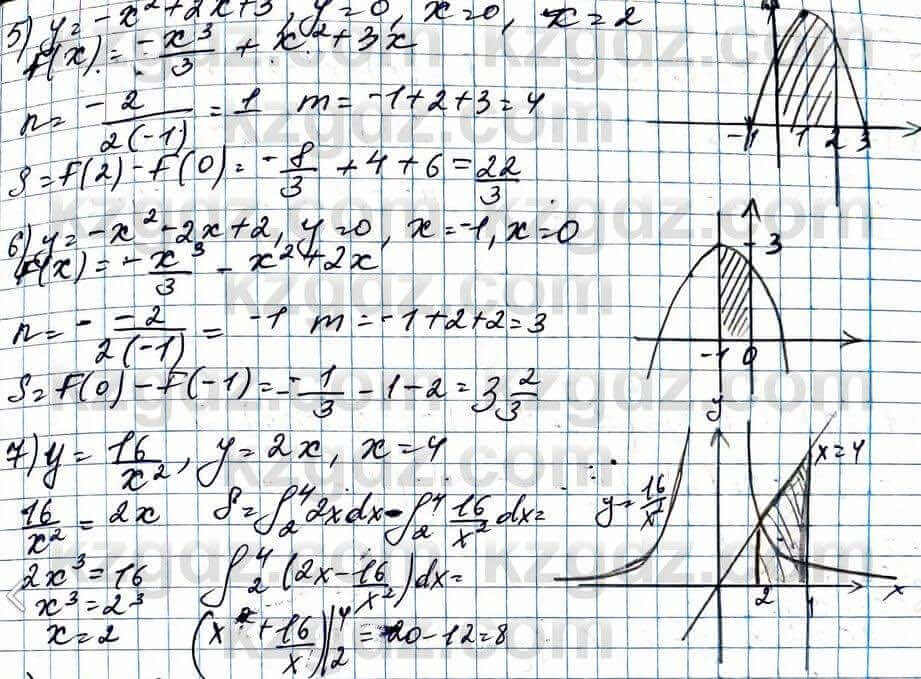 5) y = -x² + 2x + 3, y = 0, x = 0, x = 2
F(x) = -x³/3 + x² + 3x
n = -2/(2(-1)) = 1 m = -1 + 2 + 3 = 4
S = F(2) - F(0) = -8/3 + 4 + 6 = 22/3
-1 1 2 3
6) y = -x² - 2x + 2, y = 0, x = -1, x = 0
F(x) = -x³/3 - x² + 2x
n = - -2/(2(-1)) = -1 m = -1 + 2 + 2 = 3
S = F(0) - F(-1) = -1/3 - 1 - 2 = 3 2/3
3
-1 0
7) y = 16/x², y = 2x, x = 4
16/x² = 2x S = ∫₂⁴ 2x dx - ∫₂⁴ 16/x² dx =
2x³ = 16 ∫₂⁴ (2x - 16/x²) dx =
x³ = 2³
x = 2 (x² + 16/x)|₂⁴ = 20 - 12 = 8
y
x = 4
y = 16/x²
2 x
kzgdz.com